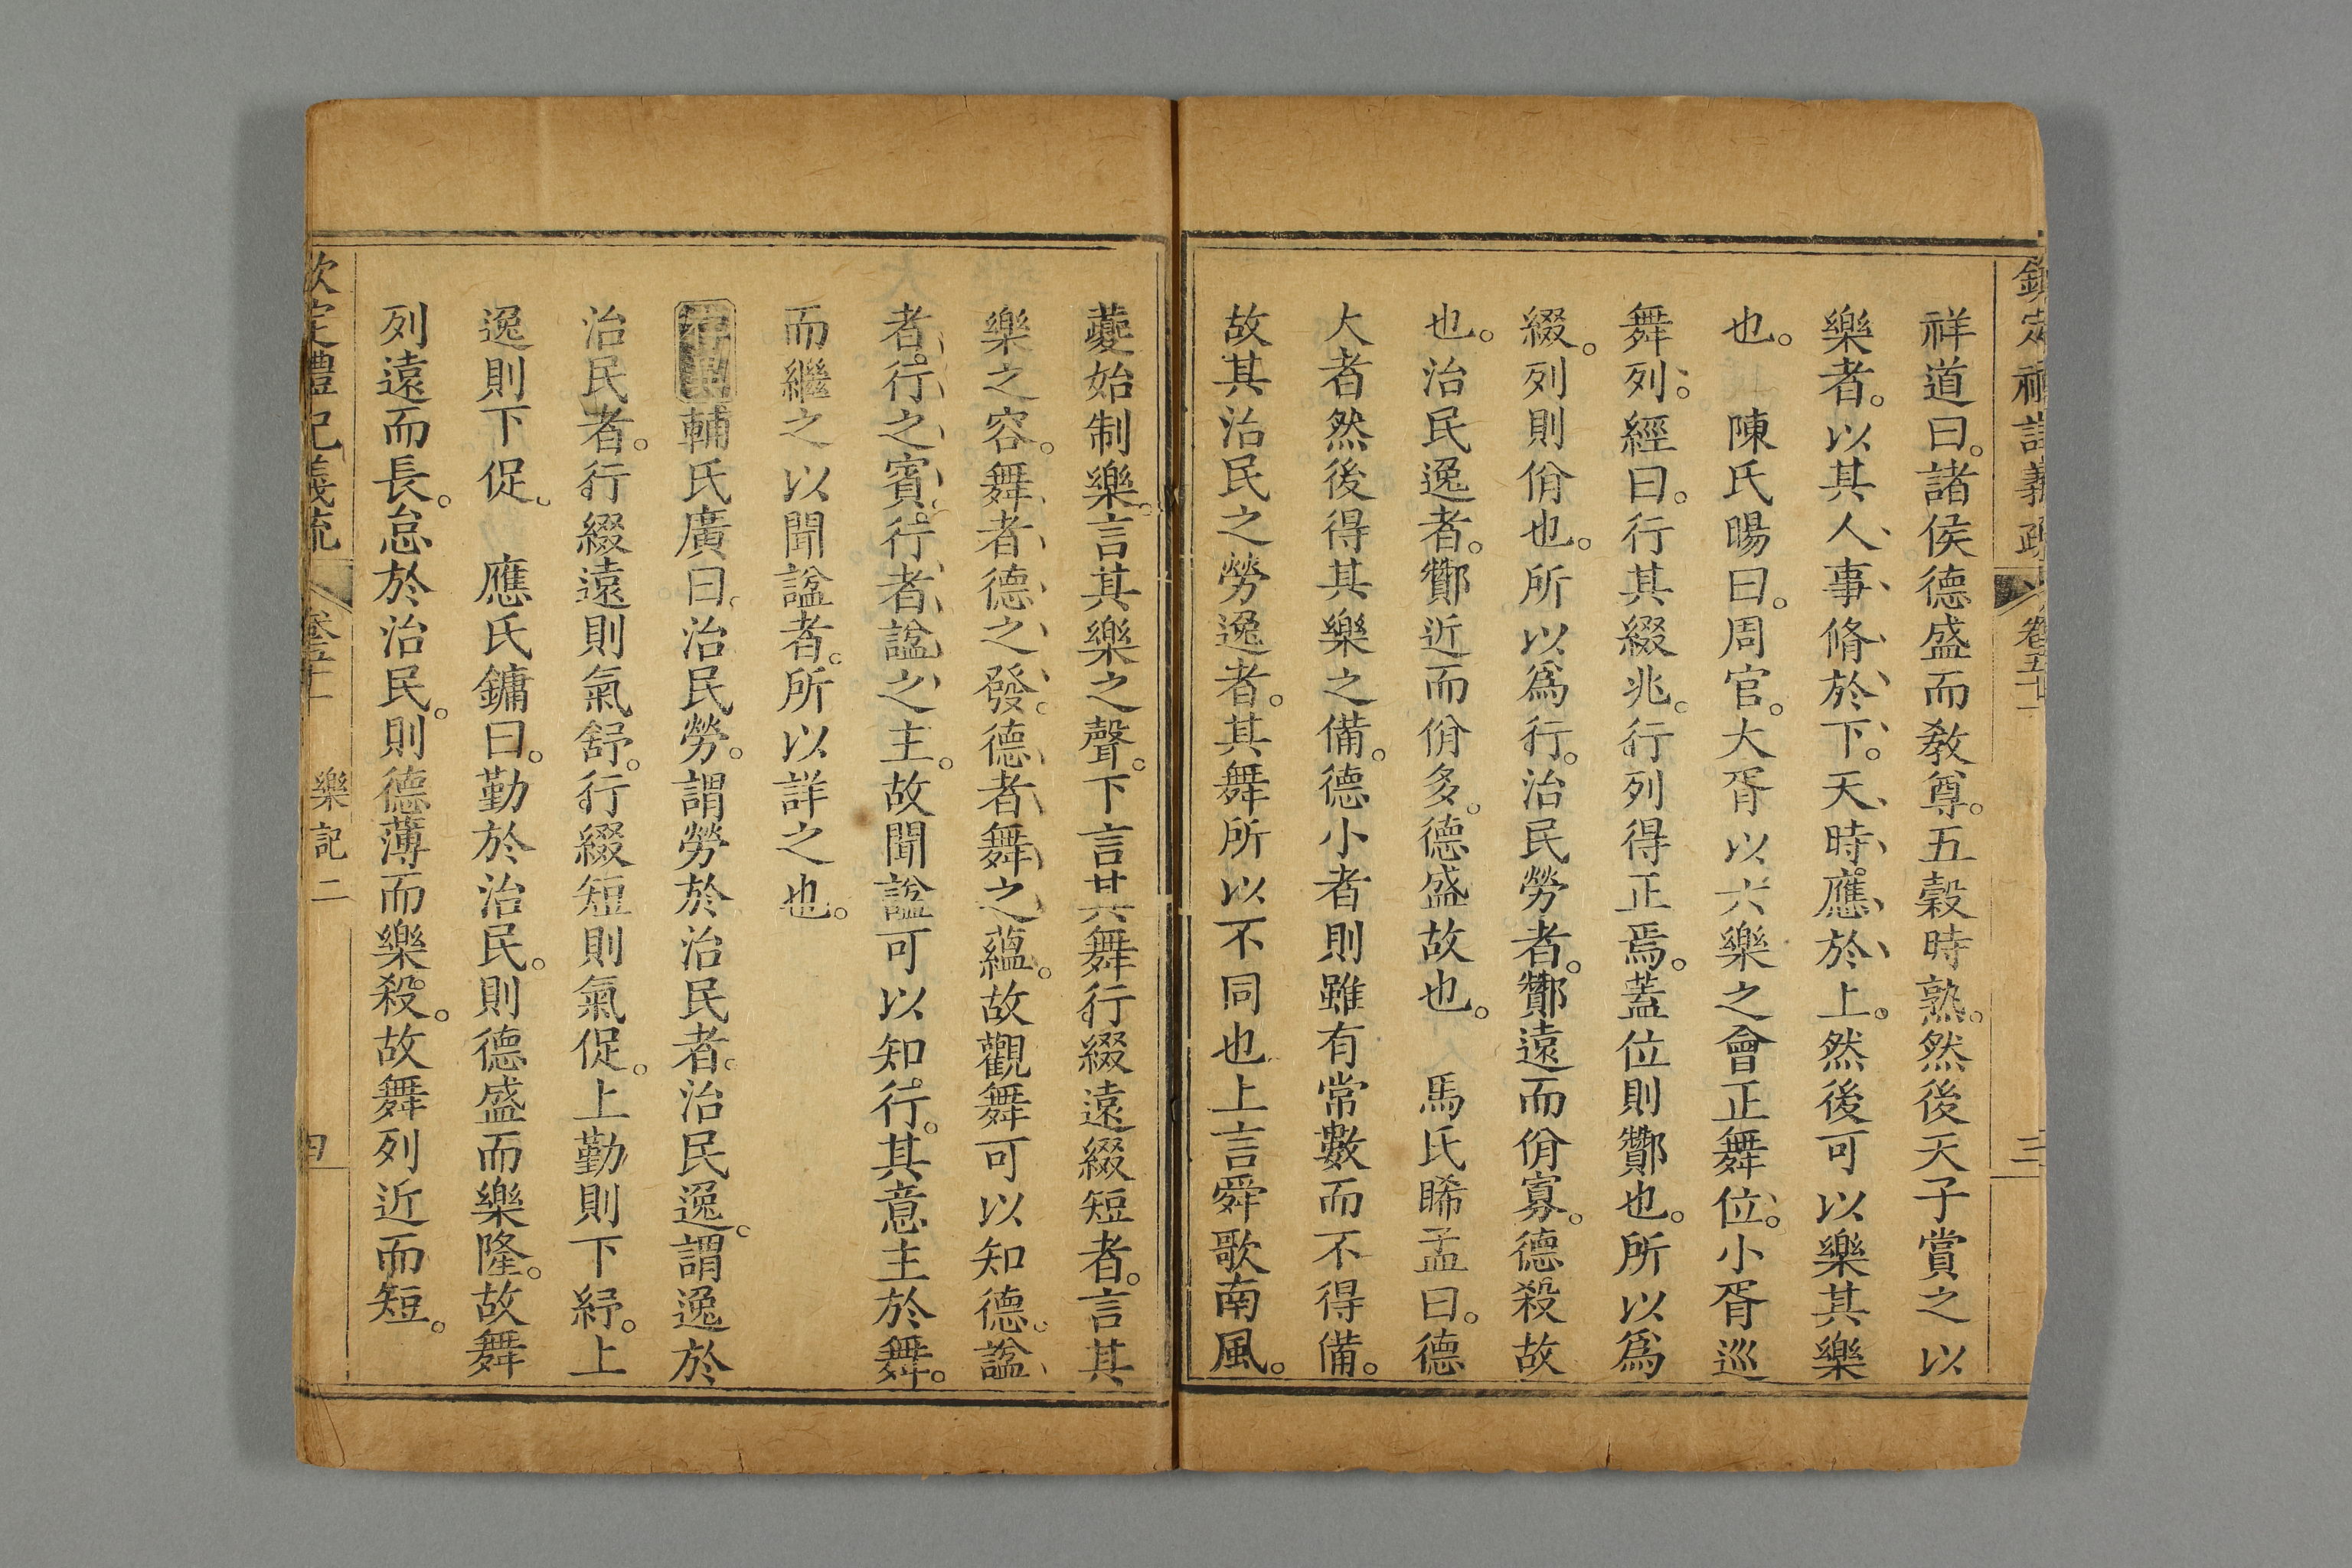 欽定禮記義疏 卷五十一 三
祥道曰。諸侯德盛而教尊。五穀時熟。然後天子賞之以
樂者。以其人事脩於下。天時應於上。然後可以樂其樂
也。 陳氏暘曰。周官。大胥以六樂之會正舞位。小胥巡
舞列。經曰。行其綴兆。行列得正焉。蓋位則酇也。所以爲
綴。列則佾也。所以爲行。治民勞者。酇遠而佾寡。德殺故
也。治民逸者。酇近而佾多。德盛故也。 馬氏睎孟曰。德
大者然後得其樂之備。德小者則雖有常數而不得備。
故其治民之勞逸者。其舞所以不同也上言舜歌南風。
夔始制樂。言其樂之聲。下言其舞行綴遠綴短者。言其
樂之容。舞者德之發。德者舞之蘊。故觀舞可以知德。諡
者行之賓。行者諡之主。故聞諡可以知行。其意主於舞。
而繼之以聞諡者。所以詳之也。
輔氏廣曰。治民勞。謂勞於治民者。治民逸。謂逸於
治民者。行綴遠則氣舒。行綴短則氣促。上勤則下紓。上
逸則下促。 應氏鏞曰。勤於治民。則德盛而樂隆。故舞
列遠而長。怠於治民。則德薄而樂殺。故舞列近而短。
欽定禮記義疏 卷五十一 樂記二 四